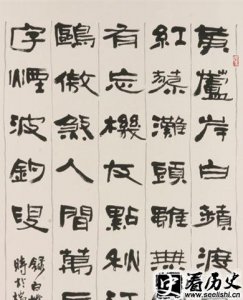 黃蘆岸白蘋渡
紅蓼灘頭雖無
有忘機友點秋江
鷗傲煞人間萬
字煙波釣叟
錄白
時於
看历史